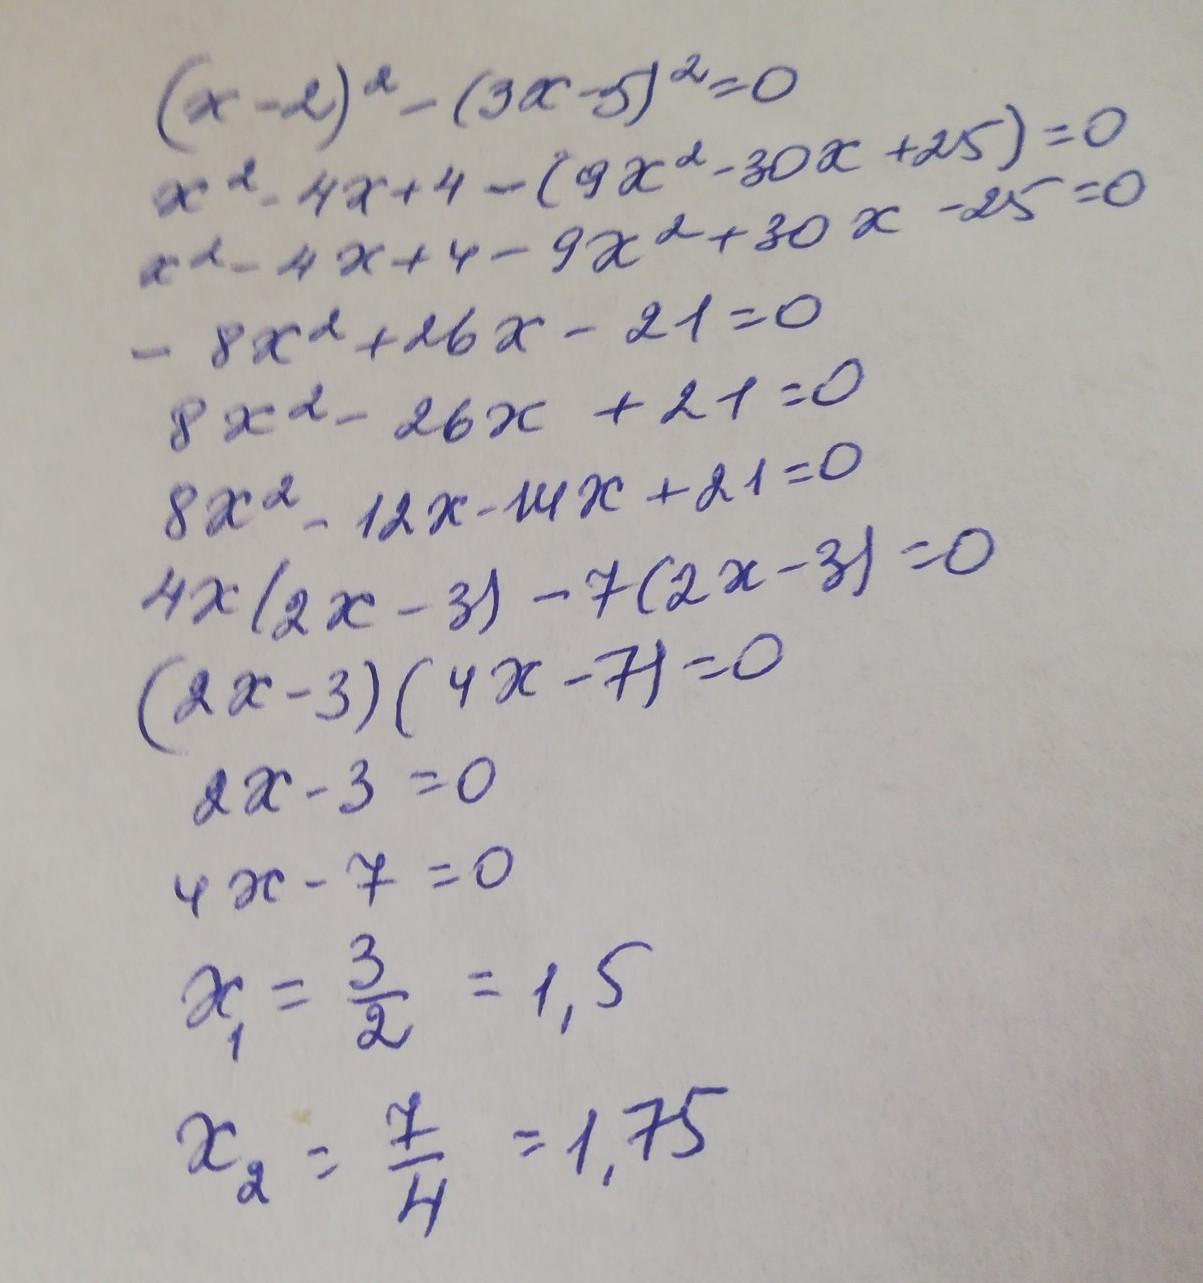 (x-2)²-(3x-5)²=0
x²-4x+4-(9x²-30x+25)=0
x²-4x+4-9x²+30x-25=0
-8x²+26x-21=0
8x²-26x+21=0
8x²-12x-14x+21=0
4x(2x-3)-7(2x-3)=0
(2x-3)(4x-7)=0
2x-3=0
4x-7=0
x₁=3/2=1,5
x₂=7/4=1,75